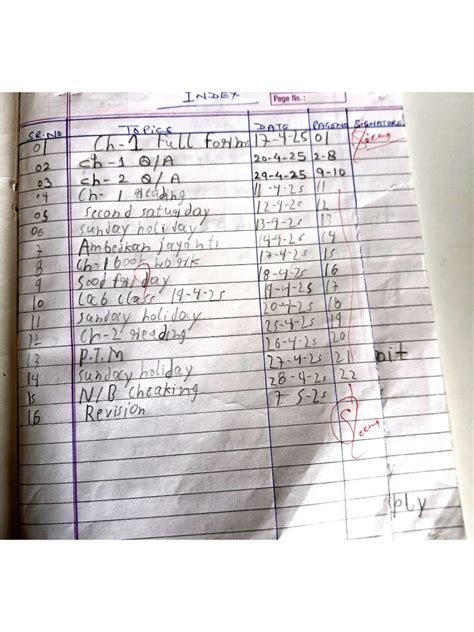 INDEX Page No.:
SR.NO TOPICS DATE PAGENO SIGNATURE
01 Ch-1 Full Form 17-4-25 01
02 ch-1 Q/A 20-4-25 2-8
03 ch-2 Q/A 29-4-25 9-10
04 Ch-1 reading 11-4-25 11
05 Second saturday 12-4-25 12
06 sunday holiday 13-4-25 13
7 Ambedkar jayanti 14-4-25 14
8 Ch-1 book work 17-4-25 15
9 Good friday 18-4-25 16
10 Lab class 19-4-25 19-4-25 17
11 sunday holiday 20-4-25 18
12 Ch-2 reading 25-4-25 19
13 P.T.M 26-4-25 20
14 sunday holiday 27-4-25 21
15 N/B cheaking 28-4-25 22
16 Revision 7-5-25
nit
ply